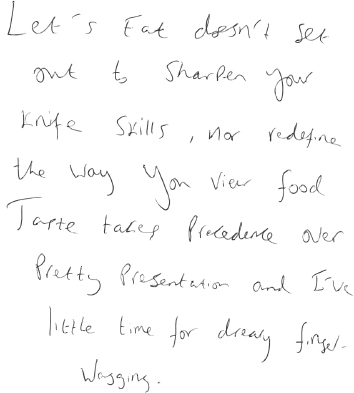 Let's Eat doesn't set
out to sharpen your
knife skills, nor redefine
the way you view food
Taste takes precedence over
Pretty Presentation and I've
little time for dreary finger-
wagging.